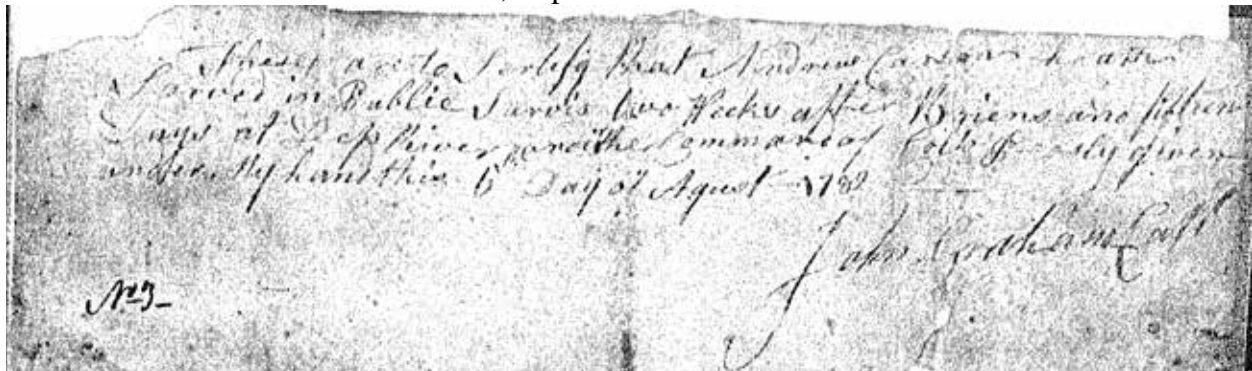 These are to Sertify that Andrew Carson hath
Served in Public Sarvis two Weeks after Briens and fifteen
Days at Deep River under the Command of Colo
under My hand this 6th Day of Agust 1782
John Graham Capt
No 3